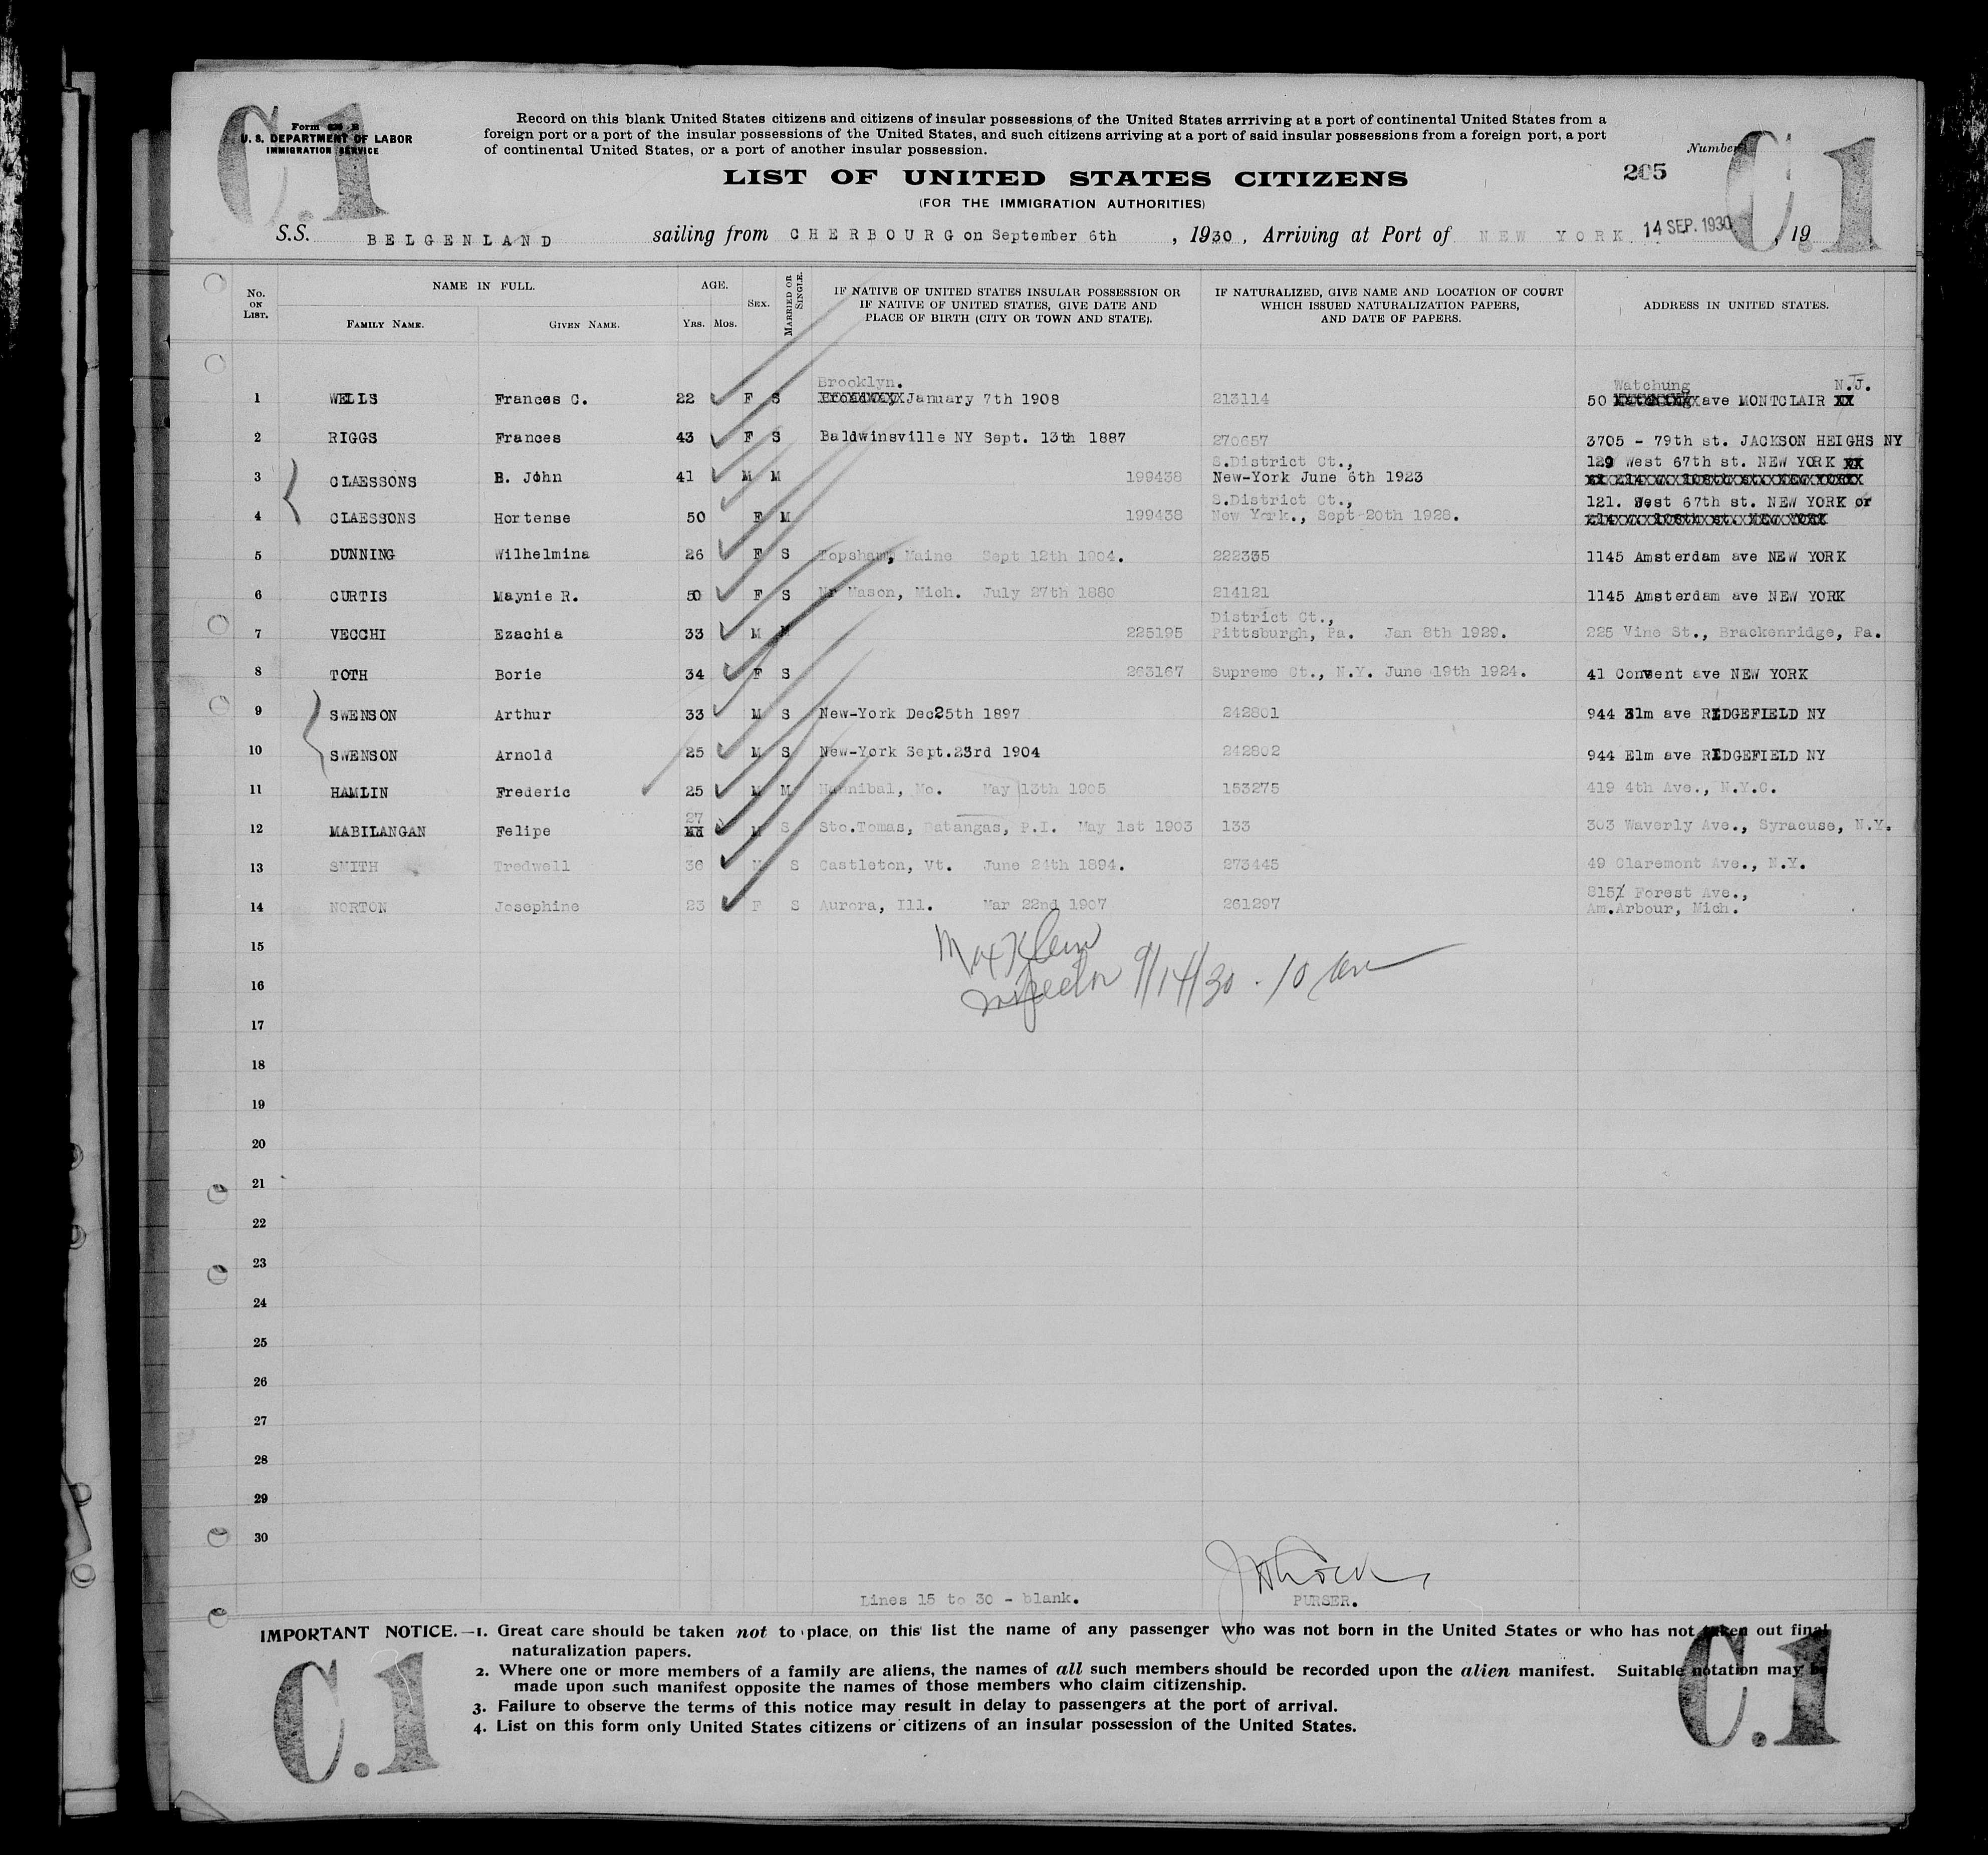 C.1
Form 630 B
U. S. DEPARTMENT OF LABOR
IMMIGRATION SERVICE
Record on this blank United States citizens and citizens of insular possessions of the United States arrriving at a port of continental United States from a
foreign port or a port of the insular possessions of the United States, and such citizens arriving at a port of said insular possessions from a foreign port, a port
of continental United States, or a port of another insular possession.
Number
C.1
LIST OF UNITED STATES CITIZENS
265
(FOR THE IMMIGRATION AUTHORITIES)
S.S. BELGENLAND sailing from CHERBOURG on September 6th, 1930, Arriving at Port of NEW YORK 14 SEP. 1930, 19
No. ON LIST. NAME IN FULL. FAMILY NAME. GIVEN NAME. AGE. YRS. MOS. SEX. MARRIED OR SINGLE. IF NATIVE OF UNITED STATES INSULAR POSSESSION OR IF NATIVE OF UNITED STATES, GIVE DATE AND PLACE OF BIRTH (CITY OR TOWN AND STATE). IF NATURALIZED, GIVE NAME AND LOCATION OF COURT WHICH ISSUED NATURALIZATION PAPERS, AND DATE OF PAPERS. ADDRESS IN UNITED STATES.
Brooklyn. Watchung N.J.
1 WELLS Frances C. 22 F S January 7th 1908 213114 50 ave MONTCLAIR
2 RIGGS Frances 43 F S Baldwinsville NY Sept. 13th 1887 270657 3705 - 79th st. JACKSON HEIGHS NY
S.District Ct., 129 West 67th st. NEW YORK
3 CLAESSONS B. John 41 M M 199438 New-York June 6th 1923
S.District Ct., 121. West 67th st. NEW YORK or
4 CLAESSONS Hortense 50 F M 199438 New York., Sept 20th 1928.
5 DUNNING Wilhelmina 26 F S Topsham, Maine Sept 12th 1904. 222335 1145 Amsterdam ave NEW YORK
6 CURTIS Maynie R. 50 F S Mason, Mich. July 27th 1880 214121 1145 Amsterdam ave NEW YORK
District Ct.,
7 VECCHI Ezachia 33 M M 225195 Pittsburgh, Pa. Jan 8th 1929. 225 Vine St., Brackenridge, Pa.
8 TOTH Borie 34 F S 263167 Supreme Ct., N.Y. June 19th 1924. 41 Convent ave NEW YORK
9 SWENSON Arthur 33 M S New-York Dec25th 1897 242801 944 Elm ave RIDGEFIELD NY
10 SWENSON Arnold 25 M S New-York Sept.23rd 1904 242802 944 Elm ave RIDGEFIELD NY
11 HAMLIN Frederic 25 M M Hannibal, Mo. May 13th 1905 153275 419 4th Ave., N.Y.C.
27
12 MABILANGAN Felipe M S Sto.Tomas, Batangas, P.I. May 1st 1903 133 303 Waverly Ave., Syracuse, N.Y.
13 SMITH Tredwell 36 M S Castleton, Vt. June 24th 1894. 273445 49 Claremont Ave., N.Y.
815 Forest Ave.,
14 NORTON Josephine 23 F S Aurora, Ill. Mar 22nd 1907 261297 Am.Arbour, Mich.
15
Max Klein
16
Inspector 9/14/30 - 10 am
17
18
19
20
21
22
23
24
25
26
27
28
29
30
Lines 15 to 30 - blank.
PURSER.
IMPORTANT NOTICE.—1. Great care should be taken not to place on this list the name of any passenger who was not born in the United States or who has not taken out final
naturalization papers.
2. Where one or more members of a family are aliens, the names of all such members should be recorded upon the alien manifest. Suitable notation may be
made upon such manifest opposite the names of those members who claim citizenship.
3. Failure to observe the terms of this notice may result in delay to passengers at the port of arrival.
4. List on this form only United States citizens or citizens of an insular possession of the United States.
C.1
C.1